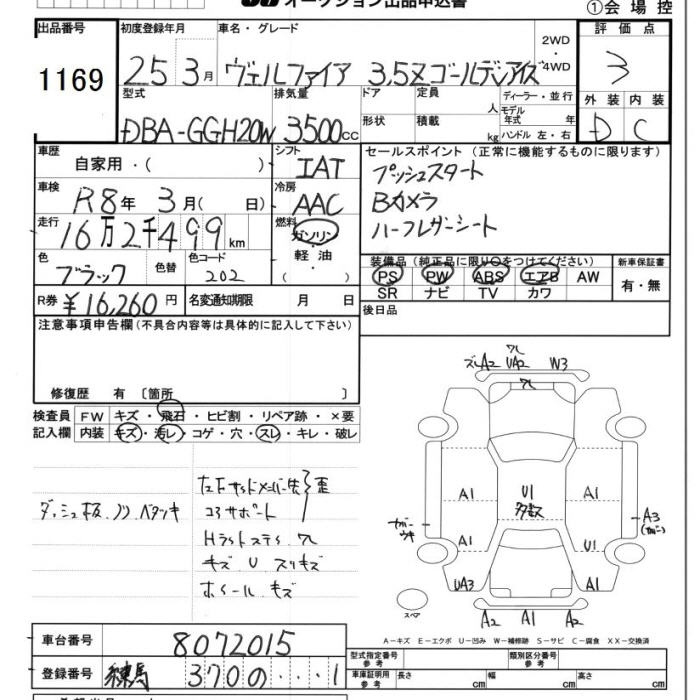 オークション出品申込書
①会場控
出品番号 1169
初度登録年月 25 3月
車名・グレード ヴェルファイア 3.5Z ゴールデンアイズ
2WD・4WD
評価点 3
型式 DBA-GGH20W
排気量 3500cc
ドア 形状
定員 人 積載 kg
ディーラー・並行
モデル年式 年
ハンドル 左・右
外装 D 内装 C
車歴 自家用・( )
シフト IAT
車検 R8年 3月( 日)
冷房 AAC
走行 16万2千499km
燃料 ガソリン・軽油・( )
色 ブラック 色替
色コード 202
R券 ¥16,260円
名変通知期限 月 日
セールスポイント(正常に機能するものに限ります)
プッシュスタート
Bカメラ
ハーフレザーシート
装備品(純正品に限り○をつけてください)
PS PW ABS エアB AW
SR ナビ TV カワ
新車保証書 有・無
後日品
注意事項申告欄(不具合内容等は具体的に記入して下さい)
修復歴 有 〔箇所 〕
検査員記入欄
FW キズ・飛石・ヒビ割・リペア跡・×要
内装 キズ・汚レ・コゲ・穴・スレ・キレ・破レ
ダッシュ板、ノリ ベタツキ
左右サイドメンバー先 歪
コアサポート
Hランド ステ、ワレ
キズ U スリキズ
ホイール キズ
ワレ
ズレA2 UA2 W3
ワレ
A1 U1 多数 A1
カバーウキ
A3 (カバー)
A1 U1
UA3 A1
A2 A1 A2
スペア
A-キズ E-エクボ U-凹み W-補修跡 S-サビ C-腐食 XX-交換済
車台番号 8072015
型式指定番号 参考
類別区分番号 参考
登録番号 練馬 370の・・・1
車庫証明用 参考 長さ cm 幅 cm 高さ cm